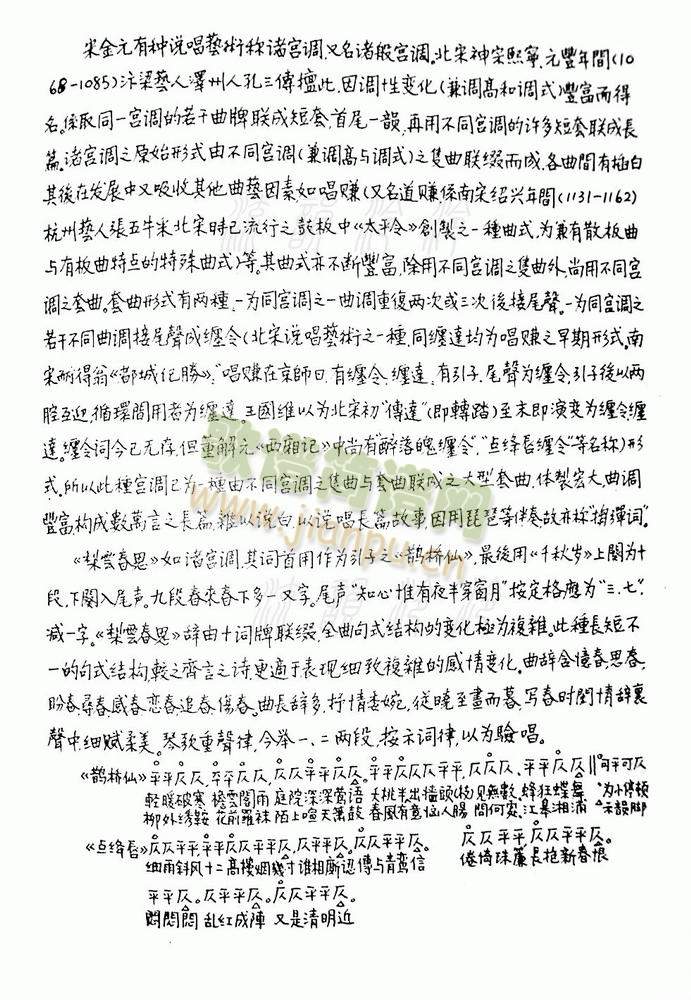 宋金元有种说唱藝術称诸宫调,又名诸般宫调。北宋神宗熙寧、元豐年間(10
68-1085)汴梁藝人澤州人孔三傳擅此,因调性变化(兼调高和调式)豐富而得
名。係取同一宫调的若干曲牌联成短套,首尾一韻,再用不同宫调的许多短套联成長
篇。诸宫调之原始形式由不同宫调(兼调高与调式)之隻曲联缀而成,各曲間有插白
其後在发展中又吸收其他曲藝因素,如唱赚(又名道赚係南宋绍兴年間(1131-1162)
杭州藝人張五牛采北宋時已流行之鼓板中《太平令》創製之一種曲式,为兼有散板曲
与有板曲特点的特殊曲式)等。其曲式亦不断豐富,除用不同宫调之隻曲外,尚用不同宫
调之套曲。套曲形式有两種,一为同宫调之一曲调重復两次或三次後接尾聲。一为同宫调之
若干不同曲调接尾聲成缠令(北宋说唱藝術之一種,同缠達均为唱赚之早期形式。南
宋耐得翁《都城纪勝》:"唱赚在京師曰,有缠令、缠達,有引子、尾聲为缠令,引子後以两
腔互迎,循環間用者为缠達。王國维以为北宋初"傳達"(即轉踏)至末即演变为缠令缠
達。缠令词今已无存,但董解元《西厢记》中尚有"醉落魄缠令"、"点绛唇缠令"等名称)形
式。所以此種宫调已为一種由不同宫调之隻曲与套曲联成之大型套曲,体製宏大,曲调
豐富,構成數萬言之長篇,雜以说白,以说唱長篇故事,因用琵琶等伴奏故亦称"搊彈词"。
《梨雲春思》如诸宫调,其词首用作为引子之《鹊桥仙》,最後用《千秋岁》上闋为十
段,下闋入尾声。九段春來春下多一又字。尾声"知心惟有夜半穿窗月"按定格應为"三、七",
减一字。《梨雲春思》辞由十词牌联缀,全曲句式结構的变化極为複雜。此種長短不
一的句式结構,較之齊言之诗更適于表现细致複雜的感情变化。曲辞含憶春、思春、
盼春、尋春、感春、恋春、追春、傷春。曲長辞多,抒情委婉,從曉至晝而暮,写春時閨情辞裏
聲中,细腻柔美。琴歌重聲律,今举一、二两段,按示词律,以为驗唱。
《鹊桥仙》平平仄仄、平平仄仄,仄仄平平仄仄。仄平平仄仄平平,仄仄仄、平平仄仄 ‖可平可仄
輕暖破寒 檐雲閣雨 庭院深深鶯语 大桃半出墙頭(杪)见無數、蜂狂蝶舞 为小停頓
柳外绣鞍 花前羅袜 陌上喧天簫鼓 春風有意恼人腸 問何处、江皋湘浦 △示韻脚
《点绛唇》仄仄平平,平平仄仄平平仄。仄平平仄,仄仄平平仄。 仄仄平平,仄仄平平仄。
细雨斜风十二高樓烟幾寸谁相廝認傳与青鸞信 倦倚珠簾長抱新春恨
平平仄。仄平平仄。仄仄平平仄。
悶悶悶 乱红成陣 又是清明近